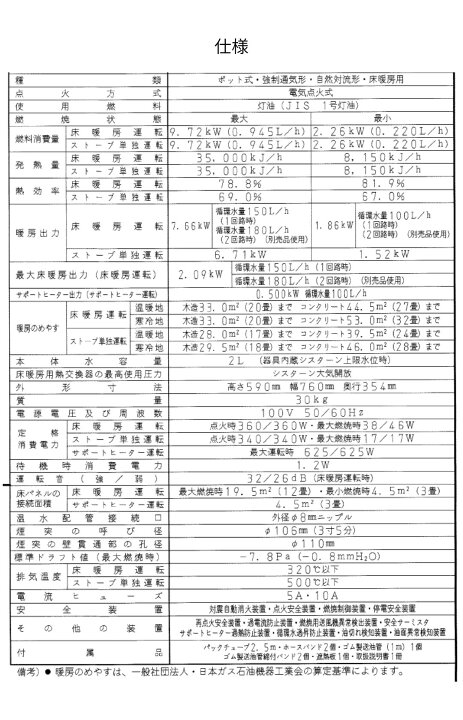 仕様
種類 ポット式・強制通気形・自然対流形・床暖房用
点火方式 電気点火式
使用燃料 灯油（ＪＩＳ 1号灯油）
燃焼状態 最大 最小
燃料消費量 床暖房運転 9.72kW（0.945L／h） 2.26kW（0.220L／h）
ストーブ単独運転 9.72kW（0.945L／h） 2.26kW（0.220L／h）
発熱量 床暖房運転 35,000kJ／h 8,150kJ／h
ストーブ単独運転 35,000kJ／h 8,150kJ／h
熱効率 床暖房運転 78.8％ 81.9％
ストーブ単独運転 69.0％ 67.0％
暖房出力 床暖房運転 7.66kW 循環水量150L／h（1回路時） 循環水量180L／h（2回路時）（別売品使用） 1.86kW 循環水量100L／h（1回路時）（2回路時）（別売品使用）
ストーブ単独運転 6.71kW 1.52kW
最大床暖房出力（床暖房運転） 2.09kW 循環水量150L／h（1回路時）
循環水量180L／h（2回路時）（別売品使用）
サポートヒーター出力（サポートヒーター運転） 0.500kW 循環水量100L／h
暖房のめやす 床暖房運転 温暖地 木造33.0m²（20畳）まで コンクリート44.5m²（27畳）まで
寒冷地 木造33.0m²（20畳）まで コンクリート53.0m²（32畳）まで
ストーブ単独運転 温暖地 木造28.0m²（17畳）まで コンクリート39.5m²（24畳）まで
寒冷地 木造29.5m²（18畳）まで コンクリート46.0m²（28畳）まで
本体水容量 2L （器具内蔵シスターン上限水位時）
床暖房用熱交換器の最高使用圧力 シスターン大気開放
外形寸法 高さ590㎜ 幅760㎜ 奥行354㎜
質量 30kg
電源電圧及び周波数 100V 50/60Hz
定格消費電力 床暖房運転 点火時360/360W・最大燃焼時38/46W
ストーブ単独運転 点火時340/340W・最大燃焼時17/17W
サポートヒーター運転 最大運転時 625/625W
待機時消費電力 1.2W
運転音（強／弱） 32/26dB（床暖房運転時）
床パネルの接続面積 床暖房運転 最大燃焼時19.5m²（12畳）・最小燃焼時4.5m²（3畳）
サポートヒーター運転 4.5m²（3畳）
温水配管接続口 外径φ8㎜ニップル
煙突の呼び径 φ106㎜（3寸5分）
煙突の壁貫通部の孔径 φ110㎜
標準ドラフト値（最大燃焼時） −7.8Pa（−0.8mmH₂O）
排気温度 床暖房運転 320℃以下
ストーブ単独運転 500℃以下
電流ヒューズ 5A・10A
安全装置 対震自動消火装置・点火安全装置・燃焼制御装置・停電安全装置
その他の装置 再点火安全装置・過電流防止装置・燃焼用送風機異常検出装置・安全サーミスタ
サポートヒーター過熱防止装置・循環水過昇防止装置・油切れ検知装置・油面異常検知装置
付属品 パックチューブ2.5m・ホースバンド2個・ゴム製送油管（1m）1個
ゴム製送油管締付バンド2個・遮熱板1個・取扱説明書1冊
備考）● 暖房のめやすは、一般社団法人・日本ガス石油機器工業会の算定基準によります。